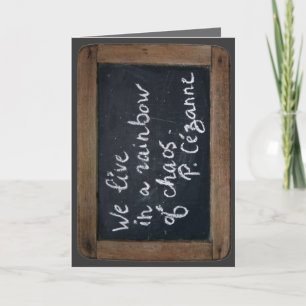 We live
in a rainbow
of chaos.
P. Cézanne